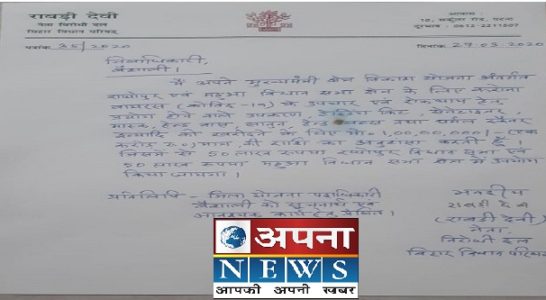 राबड़ी देवी
नेता विरोधी दल
बिहार विधान परिषद्
आवास :
10, सर्कुलर रोड, पटना
दूरभाष : 0612-2211507
पत्रांक 35/2020
दिनांक 29.03.2020
जिलाधिकारी,
वैशाली।
मैं अपने मुख्यमंत्री क्षेत्र विकास योजना अंतर्गत
राघोपुर एवं महुआ विधान सभा क्षेत्र के लिए करोना
वायरस (कोविड-19) के उपचार एवं रोकथाम हेतु
उपयोग होने वाले उपकरण, टेस्टिंग किट, सेनेटाइजर,
मास्क, हैण्ड वास, साबुन, तथा थर्मल स्कैनर
इत्यादि को खरीदने के लिए मो० 1,00,00,000/- (एक
करोड़ रु०) मात्र की राशि का अनुशंसा करती हूँ।
जिसमें से 50 लाख रूपया राघोपुर विधान सभा एवं
50 लाख रूपया महुआ विधान सभा क्षेत्र में उपयोग
किया जायगा।
प्रतिलिपि - जिला योजना पदाधिकारी
वैशाली को सूचनार्थ एवं
आवश्यक कार्य हेतु प्रेषित।
भवदीय
राबड़ी देवी
(राबड़ी देवी)
नेता
विरोधी दल
बिहार विधान परिषद
अपना
NEWS
आपकी अपनी खबर